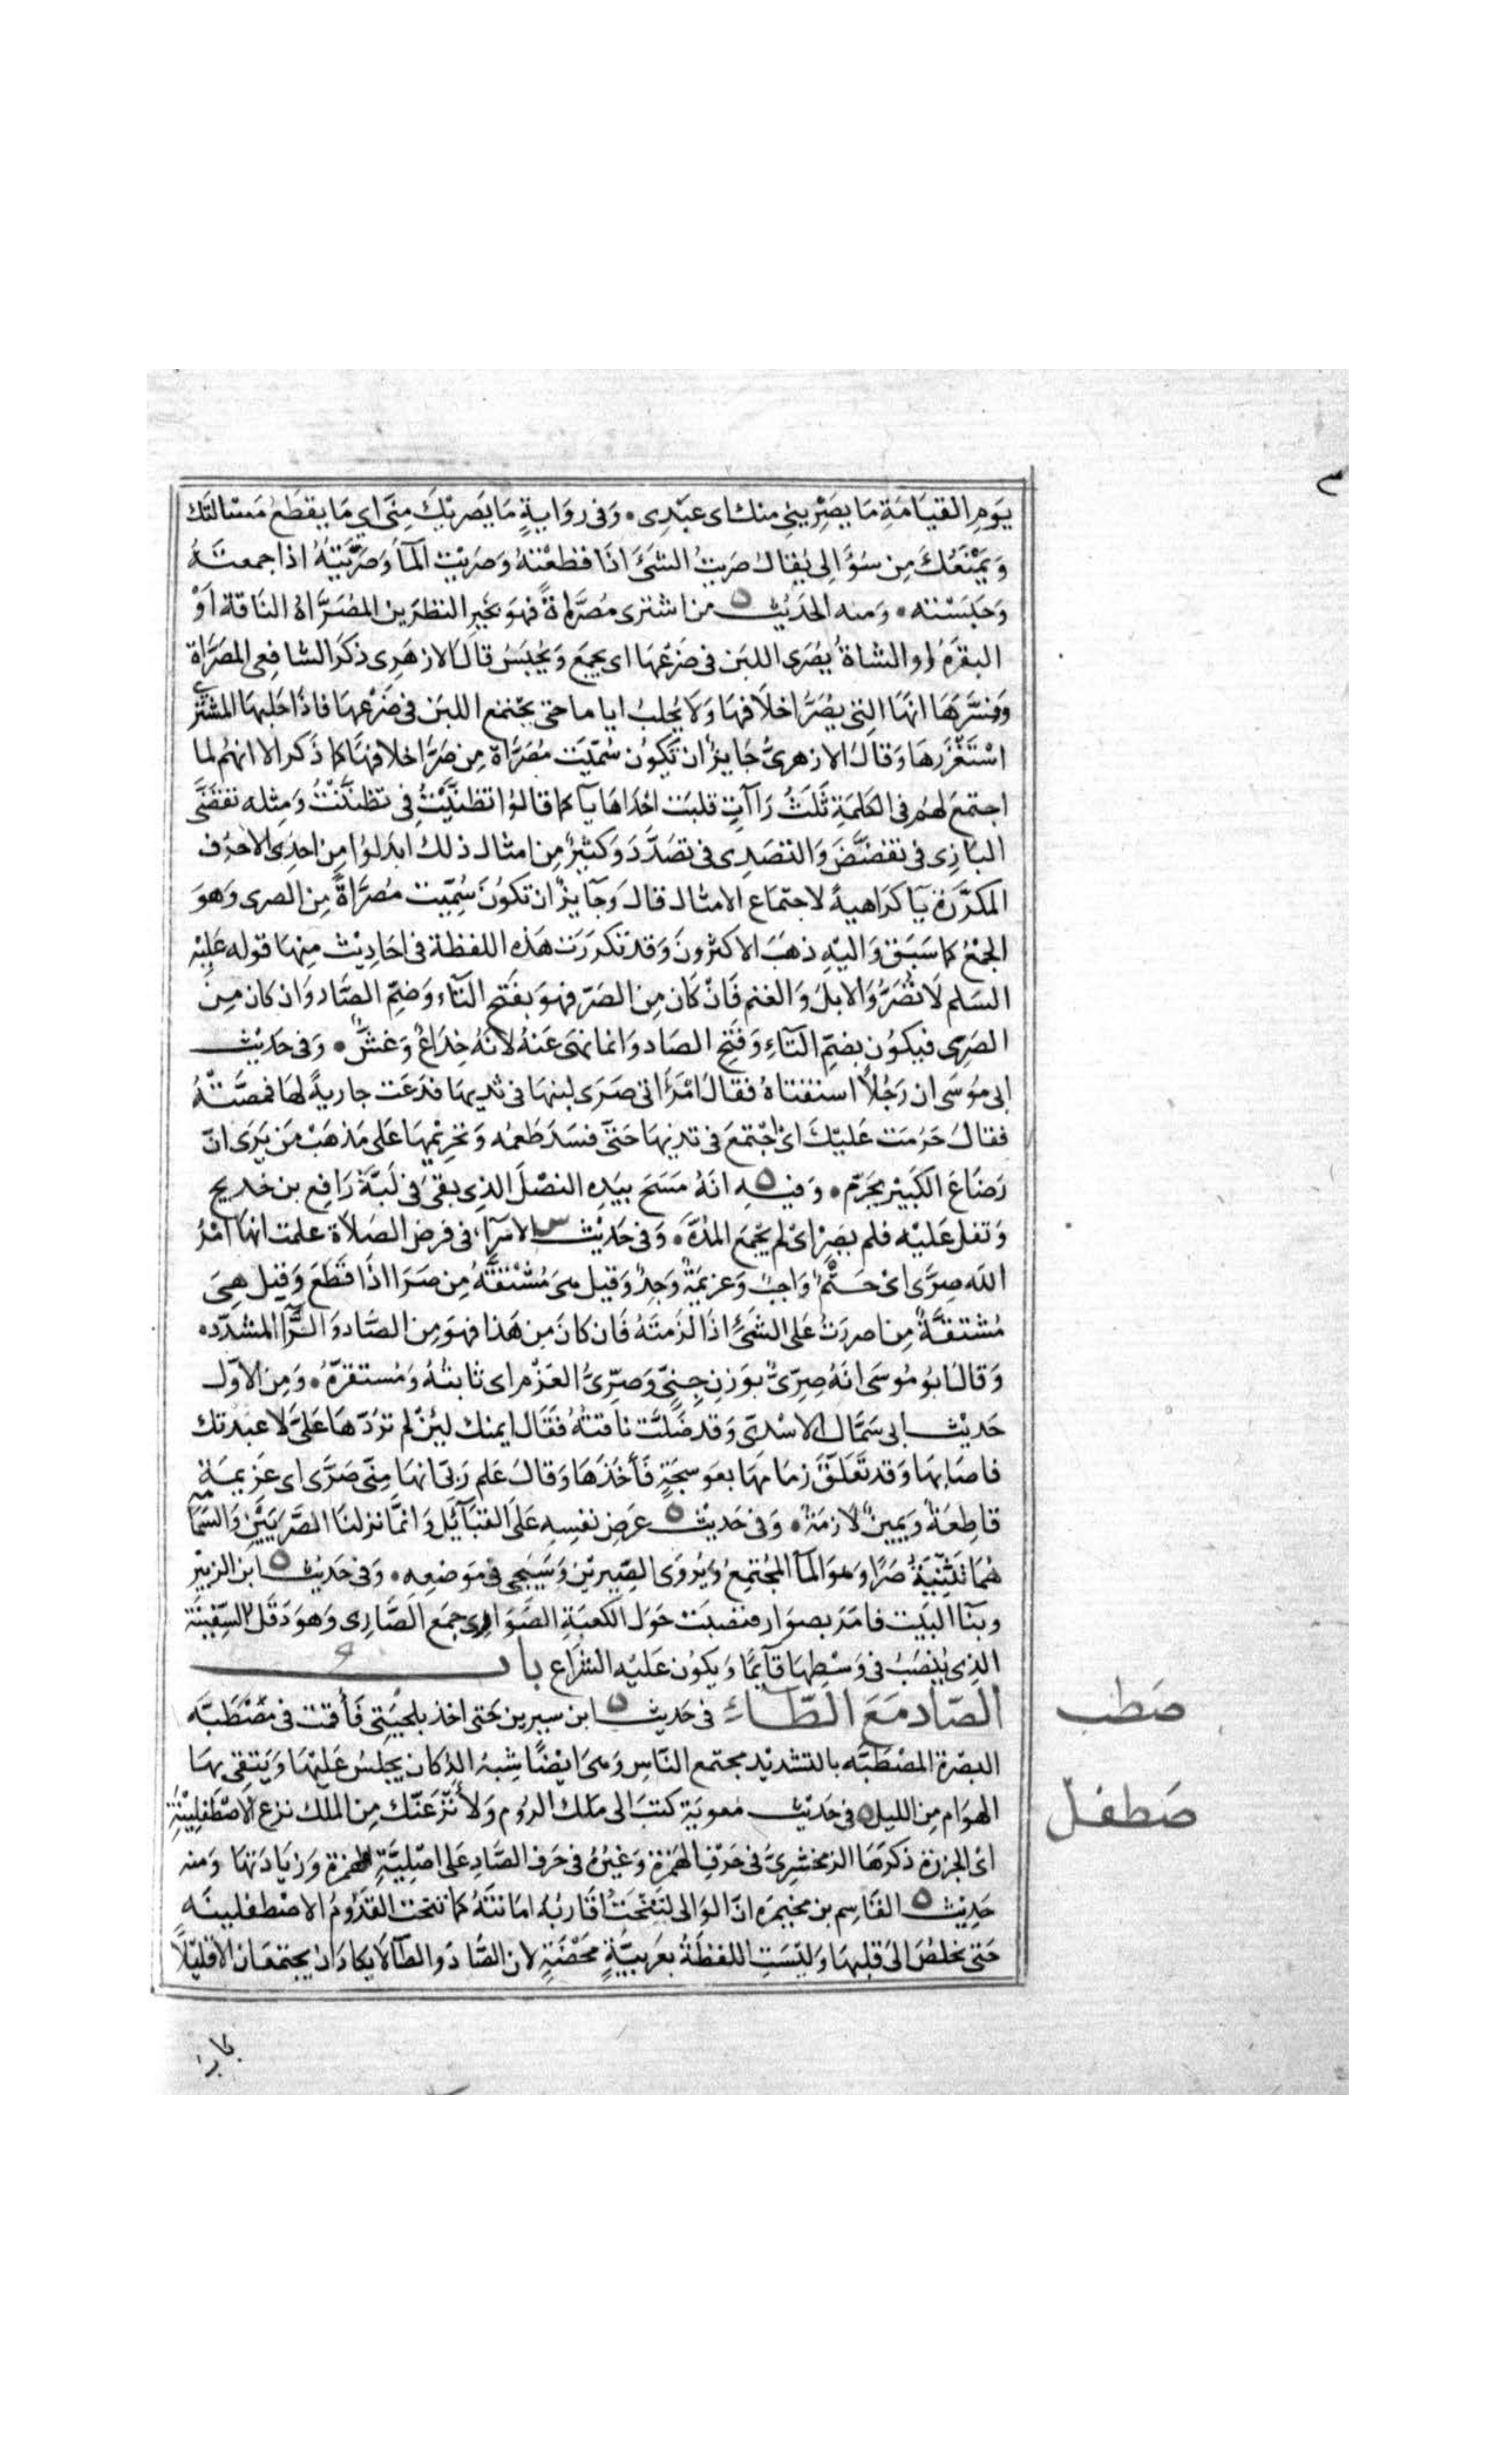 يَومِ القيَامَةِ مَا يصَرِيني منك اى عبْدِى وفى روَايةٍ مَا يَصرِيكَ مِنّى اي مَا يقطَعُ مَسْالَتَك
وَيَمْنَعُكَ مِن سُؤَالِى يُقالُ صَريتُ الشَئَ اذَا قطَعْتهُ وَصَرَيْتِ المآءَ وَصَرَّيتهُ اذا جمعتهُ
وَحَبَسْتَه ومنه الحَدِيْث من اشترى مُصَرَّاةً فهوَ بخَيرِ النظرَين المُصَرَّاةُ النَاقة اَوْ
البقَرة او الشاةُ يُصَرى اللبَن فى ضَرْعِهَا اى يجمَع وَيُحْبَسُ قالَ الازهَرِى ذكَرَ الشافِعى المصَرَّاةَ
وَفسَّرَهَا انّهَا التِى يُصَرُّ اخلَافهَا وَلَا يُحلبُ اياما حَتى يجْتمَع اللبَن فى ضَرْعِهَا فاذا حَلبهَا المشترِى
اسْتَغْزَرهَا وَقالَ الازهرىُّ جَايزٌ ان تكُون سُمّيَت مُصَرَّاة مِن صَرِّ اخلافهَا كما ذَكر الا انهُم لما
اجتمعَ لهُم فى الكلمَةِ ثَلَثُ رَاآتٍ قلبَت احْدَاهَا يآ كما قالوُا تظنَّيْتُ فى تظنَّنْتُ وَمِثله تقَضَّى
البَازِى فى تقضَّضَ وَالتصَدِى فى تصَدَّدَ وَكثيرٌ مِن امثال ذلك ابدَلوُا مِن احِدى الاحرُف
المكرَّرَة يآ كرَاهيةً لاجتمَاع الامثال قالَ وَجآيزٌ ان تكُونَ سُمِّيَت مُصَرَّاةً مِن الصرى وَهوَ
الجَمْعُ كما سَبَقَ وَاليْهِ ذهَبَ الاكثرُونَ وَقدْ تكرَرَت هَذِه اللفظة فى احَادِيْث مِنهَا قوله عَليْه
السَلم لَا تُصَرُّوا الابلَ وَالغنم فَانْ كَان مِن الصَرّ فهوَ بفَتْح التآء وَضمّ الصَّاد وَان كان مِنَ
الصَرى فيكوُن بضمِّ التآءِ وَفَتْح الصَاد وَانما نهَى عَنهُ لانهُ خِدَاعٌ وَغشٌّ وَفى حَديْث
ابى مُوسَى ان رَجُلاً استفتاهُ فقالَ امْرَأتى صَرَى لبنهَا فى ثديهَا فدَعَت جاريةً لهَا فمصَّتْهُ
فقالَ حَرُمَت عَليْكَ اىْ اجْتمعَ فى ثديهَا حَتّى فسَدَ طَعمُه وَتحرِيْمهَا عَلى مَذهَبْ مَن يَرَى انّ
رَضَاعَ الكَبِيْر يحَرّم وَفيه انّهُ مَسَحَ بيَدِه النصْلَ الذِى بقىَ فى لَبَّة رَافِع بن خديج
وَتفل عَليْه فلم يصِرْ اىْ لم يجْمَع المدَّةَ وَفى حَدِيْث الاسْرآءِ فى فرض الصَلاة علمت انهَا امْرُ
الله صِرَّى اىْ حَتْمٌ وَاجبٌ وَعزيمَةٌ وَجِدٌ وَقيل هىَ مُشْتقَّة مِن صَرَا اذَا قطَعَ وَقيل هِىَ
مُشتقَّةٌ مِن اصررتُ عَلى الشئِ اذَا لزَمتهُ فَان كانَ مِن هَذا فهوَ مِن الصَّاد وَالرَّآ المشدّده
وَقالَ ابُو مُوسَى انهُ صِرِّىٌ بوَزنِ جِنىّ وَصِرِّىُّ العَزْم اى ثابتُهُ وَمُستقرّهُ وَمِن الاَوّل
حَدِيْث ابى سَمَّال الاسْدىّ وَقد ضَلَّت ناقتهُ فقَال ايمنك ليْن لم ترُدّهَا عَلىَّ لا عبدتك
فاصَابهَا وَقد تَعَلَّقَ زمَامهَا بعَوسجَةٍ فَأخذَهَا وَقالَ عَلم رَبّى انهَا مِنّى صَرَّى اى عَزيمَة
قاطِعَةٌ وَيَمِينٌ لَازمَةٌ وَفى حَدِيْث عَرضِ نفسِهِ عَلَى القبَآئِل وَانمَّا نزلنَا الصَّرَيَيَن وَالسَمَا
هُمَا تَثنِيَةُ صَرًا وَهوَ المآ المجْتمِعُ وَيُروَى الصِّيريْن وَسَيَجى فى مَوضعِه وَفى حَدِيث ابن الزبيْر
وبنآ البَيت فامَرَ بصوَار فنصبَت حَوْلَ الكعبَةِ الصَّوَارى جمَع الصَّارِى وَهوَ دَقلُ السّفِينَة
الذِى يُنصَبُ فى وَسْطِهَا قآيمًا وَيكوُن عَليْه الشرَاع باب
الصّاد مَعَ الطّآءِ فى حَديث ابن سيرين حَتى اخذ بلحيَتى فَأقمت فى مصْطَبّه
البصْرَة المصْطَبّه بالتشديد مجتمع النّاسِ وَهىَ ايْضًا شِبهُ الدُّكانِ يجلسُ عَليْهَا وَيَتقى بهَا
الهوَام مِن الليل فى حَدِيْث معَوية كتبَ الى مَلك الرُوم وَلاَ نْزعَنّك مِن الملك نزع الاصْطَفلِيْنَةِ
اى الجزَرَة ذكرَهَا الزمخشرِىُّ فى حَرْفِ الهَمزَة وَغيْرُهُ فى حَرف الصَّادِ عَلى اصْليَّةِ الهمزة وَزيَادَتهَا وَمنه
حَدِيْث القَاسِم بن مخيْمره انّ الوَالى لتَنْحَتُ اقَاربُهُ امَانتَهُ كما تنْحَت القدُّومُ الاصْطفلينَه
حَتى تخلصَ الىَ قلبهَا وَليْسَتِ اللفظَةُ بعَربيَّةٍ محَضَةٍ لان الصَّادَ وَالطآ لَا يكادَان يجتمعَان الا قليْلاً
صَطب
صَطفل